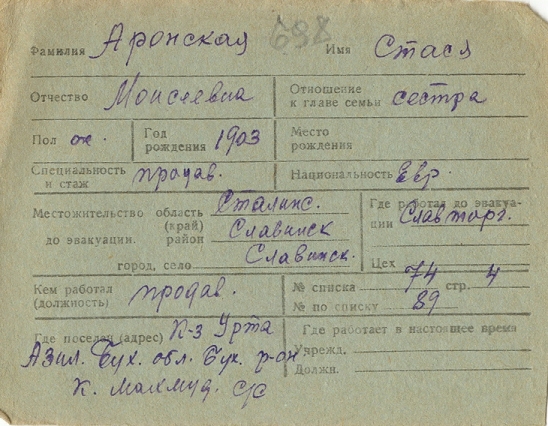 698
Фамилия Аронская Имя Стася
Отчество Моисеевна Отношение к главе семьи сестра
Пол ж. Год рождения 1903 Место рождения
Специальность и стаж продав. Национальность Евр.
Местожительство область (край) Сталинс. Где работал до эвакуации Славторг.
до эвакуации. район Славянск
город, село Славянск. Цех
Кем работал (должность) продав. № списка 74 стр. 4
№ по списку 89
Где поселен (адрес) К-з Урта Где работает в настоящее время
Азил. Бух. обл. Бух. р-он Учрежд.
К. Махмуд. с/с Должн.